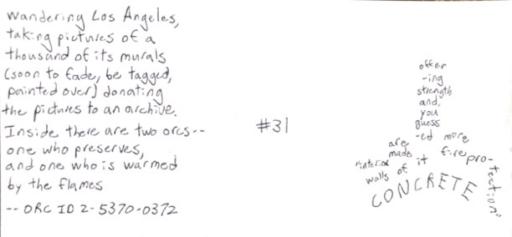 Wandering Los Angeles,
taking pictures of a
thousand of its murals
(soon to fade, be tagged,
painted over) donating
the pictures to an archive.
Inside there are two orcs--
one who preserves,
and one who is warmed
by the flames
-- ORC ID 2-5370-0372
#31
offer
-ing
strength
and,
you
guess
-ed more
fire pro-
tection
interior
walls of
are
made
it
CONCRETE